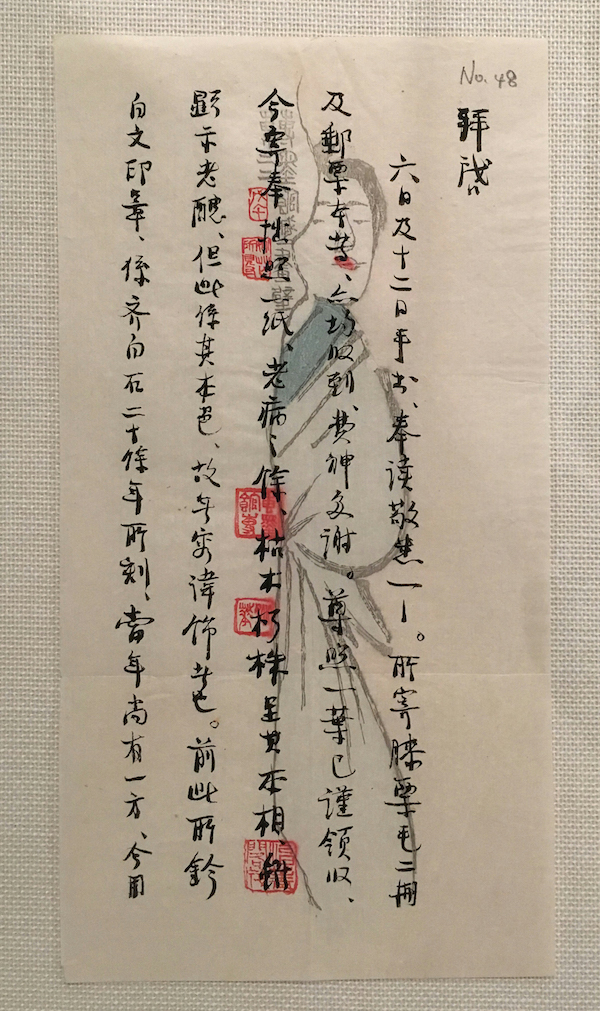 No. 48
拜啓
六日及十二日手书、奉读敬悉一一。所寄膝栗毛二册
及郵票等、均收到、费神多谢。尊照一葉已谨领收、
今寄奉拙照一纸、老病之馀、枯木朽株呈其本相、雖
顯示老醜、但此係其本色、故无容諱飾者也。前此所鈐
白文印章、係齐白石二十馀年所刻、當年尚有一方、今用